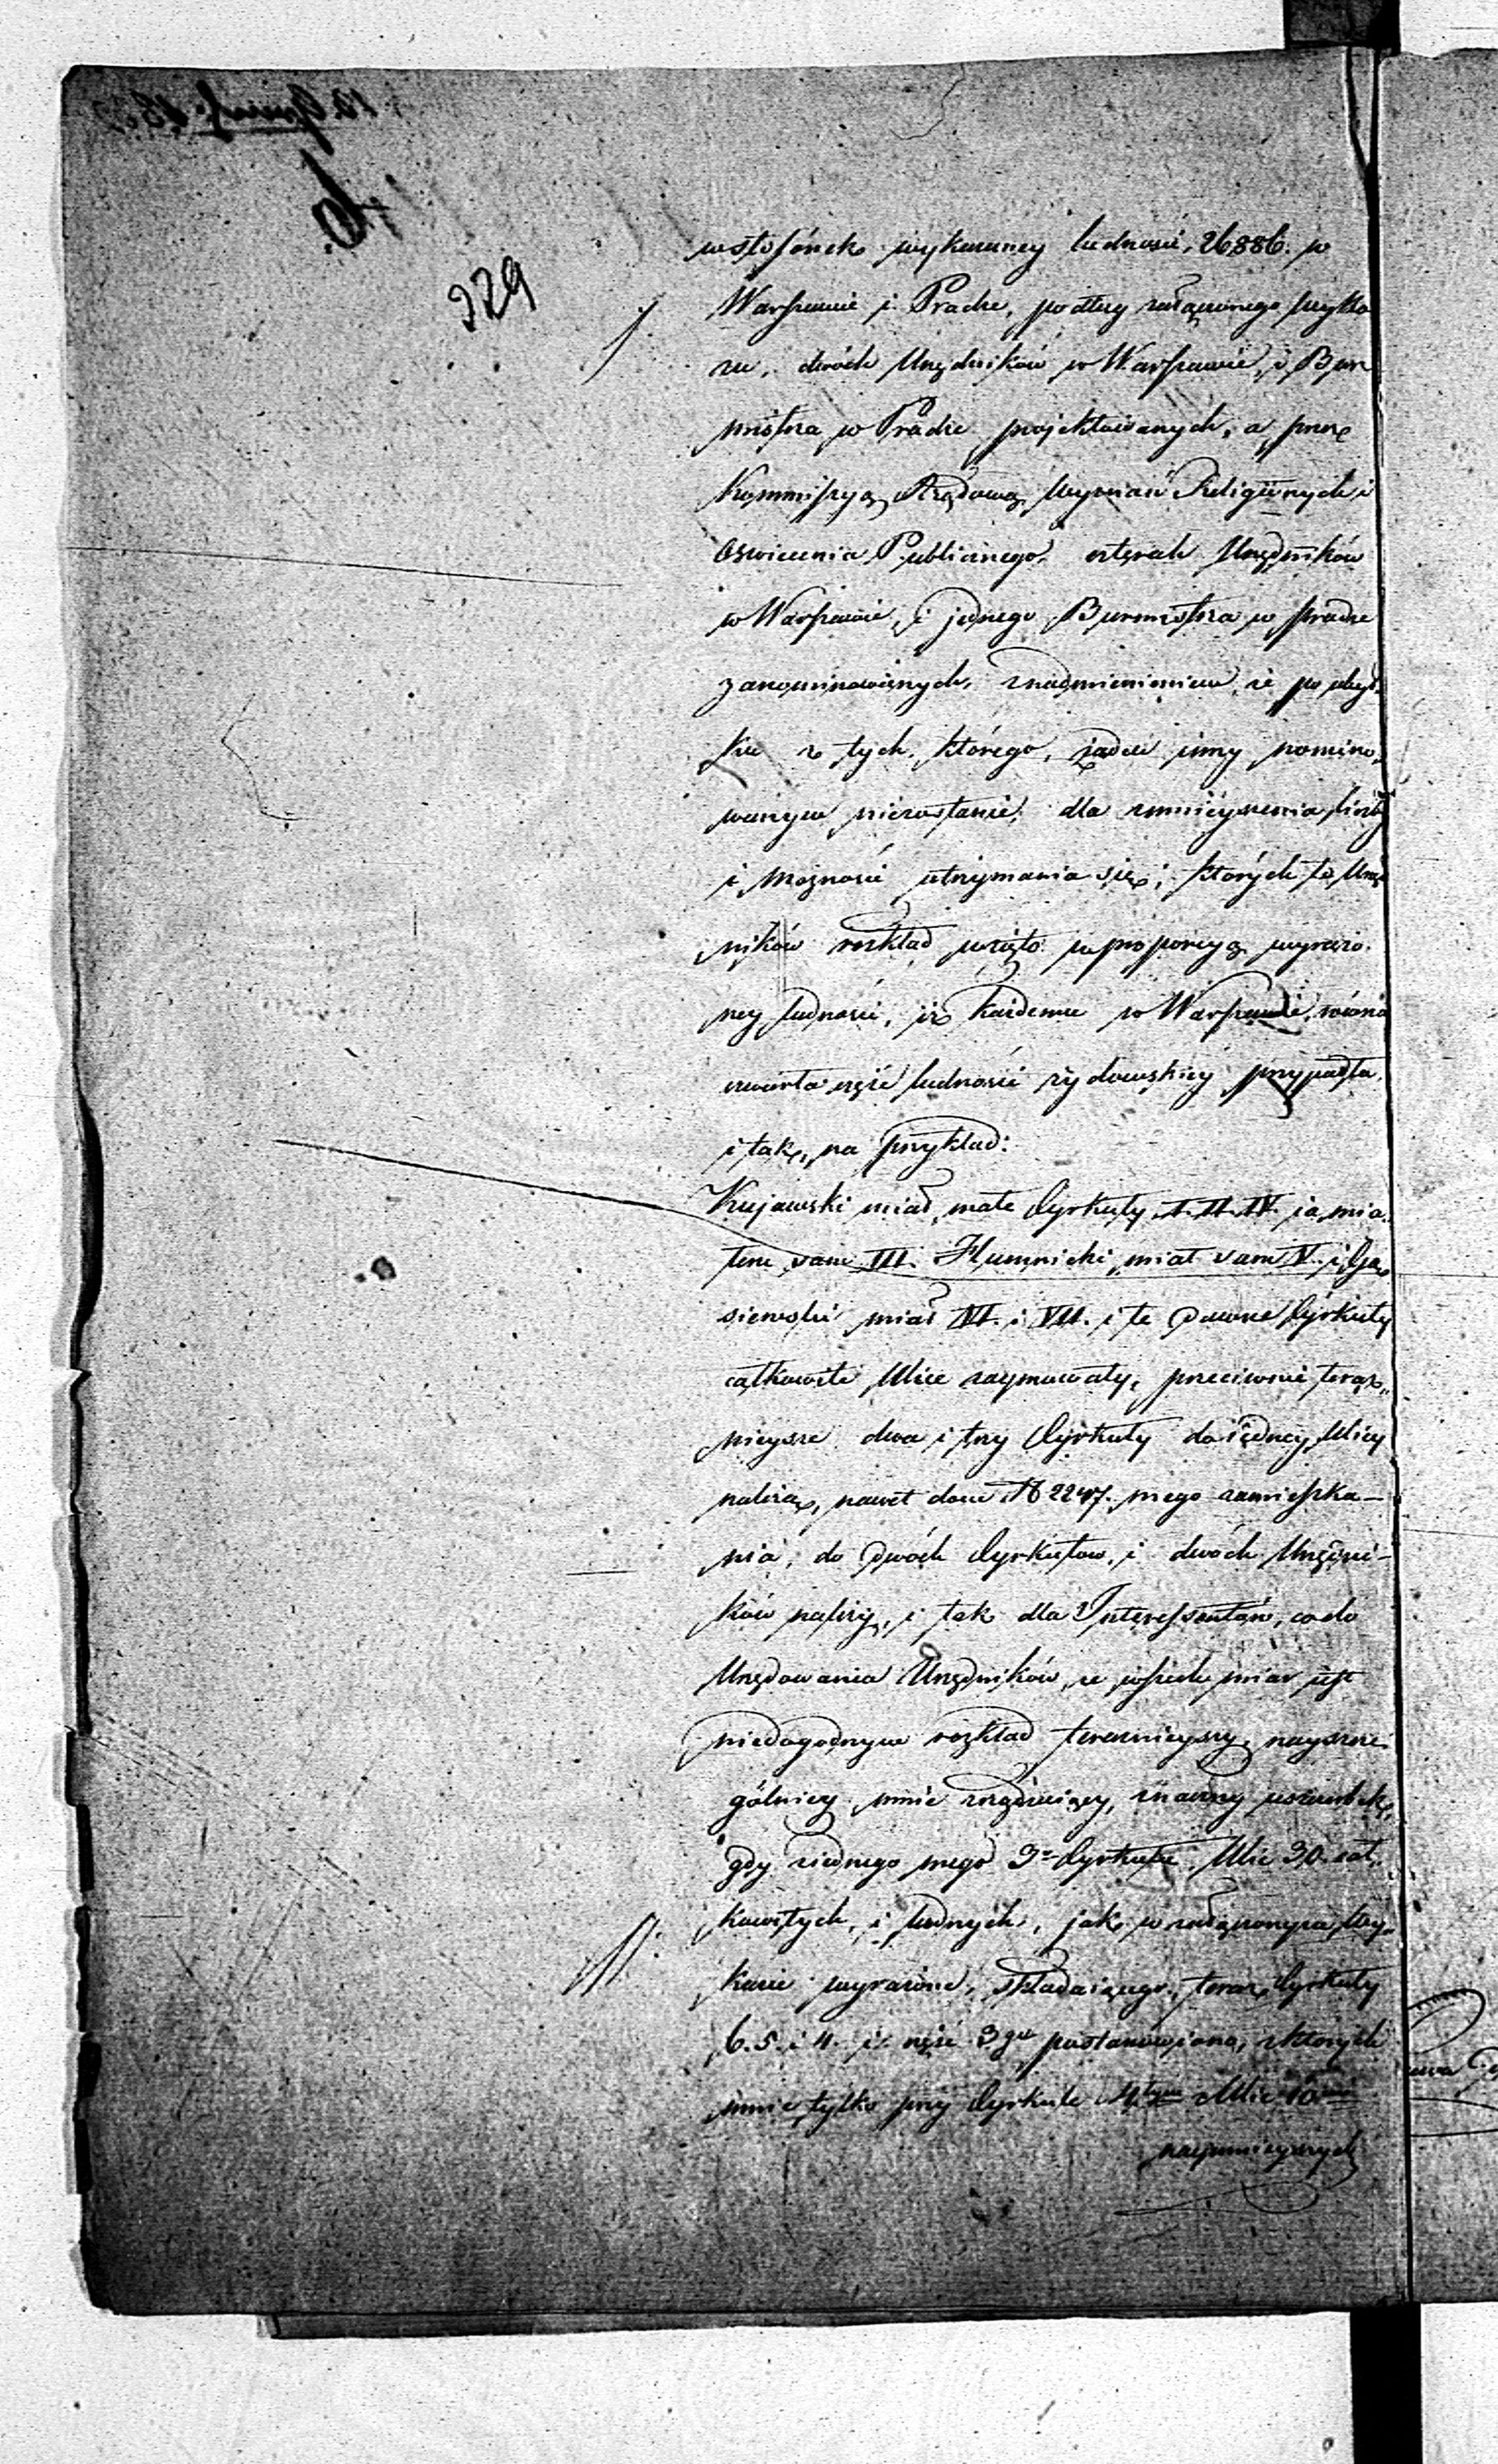 329
w stosónek wykazaney ludności, 26886. w
Warszawie i Pradze, podług załączonego wyka
zu, dwóch Urzędników w Warszawie, i Bur
mistrza w Pradze projektowanych, a przez
Kommissyą Rządową Wyznań Religiinych i
Oswiecenia Publicznego, czterech Urzędników
w Warszawie, i jednego Burmistrza w pradze
zanominowanych, znadmienieniem, że po ubyt
ku z tych, którego, żaden inny nomino,
wanym niezostanie, dla zmnieyszenia liczby
i możności utrzymania się; których to Urzę
ników rozkład wzięto w proporcyą wyrażo.
ney ludności, iż każdemu w Warszawie, równa
czwarta część ludności żydowskiey przypadła,
i tak, na przykład:
Kujawski miał małe Cyrkuły I. II. IV. ja mia.
łem sam III. Hlumnicki miał sam V. i Gą
siewski miał VI. i VII. i te dawne Cyrkuły
całkowite Ulice zaymowały, przeciwnie teraz„
nieysze dwa i trzy Cyrkuły do iedney Ulicy
należą, nawet dom № 2247. mego zamieszka-
nia, do dwóch Cyrkułow, i dwóch Urzędni-
ków należy, i tak dla Interessantów, co do
Urzędowania Urzędników, ze wszech miar jest
niedogodnym rozkład teraznieyszy, nayszcze
gólniey mnie krzywdzący,
gdy ziednego mego 3º Cyrkułu Ulic 30. cał„
kowitych, i ludnych, jak w załączonym Wy„
kazie wyrażone, składaiącego, teraz Cyrkuły
6. 5. i 4. i część 3go postanowiono, z których
mnie tylko przy Cyrkule 4tym Ulic 10
nayumnieyszych